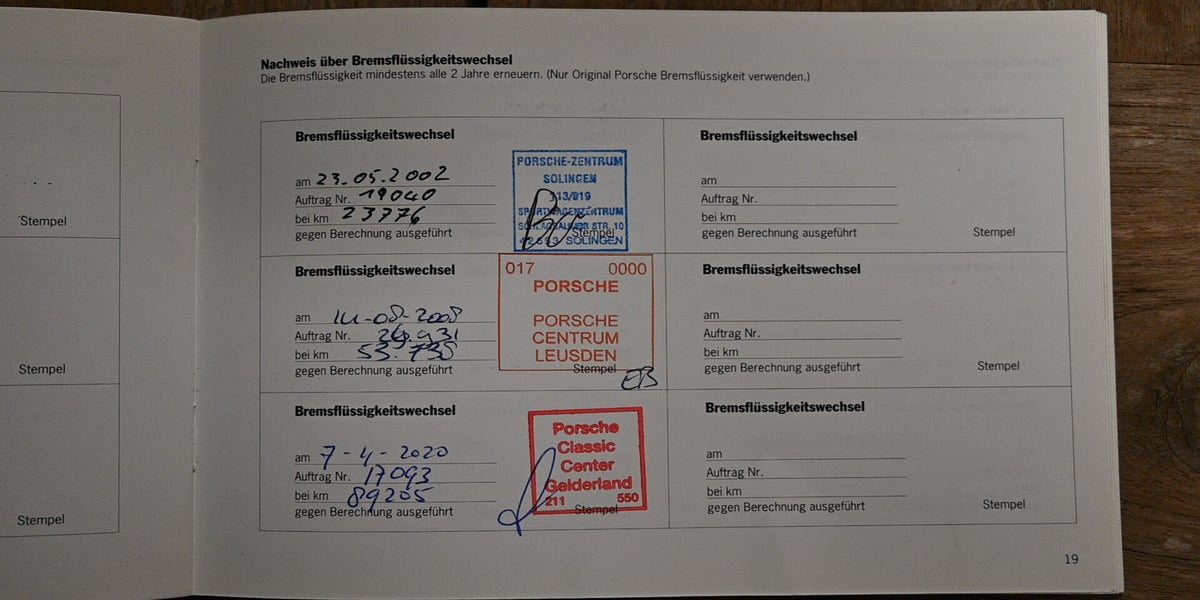 Nachweis über Bremsflüssigkeitswechsel
Die Bremsflüssigkeit mindestens alle 2 Jahre erneuern. (Nur Original Porsche Bremsflüssigkeit verwenden.)
Stempel
Stempel
Stempel
Bremsflüssigkeitswechsel
am 23.05.2002
Auftrag Nr. 19040
bei km 23776
gegen Berechnung ausgeführt
PORSCHE-ZENTRUM
SOLINGEN
113/019
SPORTWAGENZENTRUM
STR. 10
SOLINGEN
Stempel
Bremsflüssigkeitswechsel
am
Auftrag Nr.
bei km
gegen Berechnung ausgeführt
Stempel
Bremsflüssigkeitswechsel
am 14-08-2008
Auftrag Nr.
bei km 53.735
gegen Berechnung ausgeführt
017 0000
PORSCHE
PORSCHE
CENTRUM
LEUSDEN
Stempel
EB
Bremsflüssigkeitswechsel
am
Auftrag Nr.
bei km
gegen Berechnung ausgeführt
Stempel
Bremsflüssigkeitswechsel
am 7-4-2020
Auftrag Nr. 17093
bei km 89205
gegen Berechnung ausgeführt
Porsche
Classic
Center
Gelderland
211 550
Stempel
Bremsflüssigkeitswechsel
am
Auftrag Nr.
bei km
gegen Berechnung ausgeführt
Stempel
19